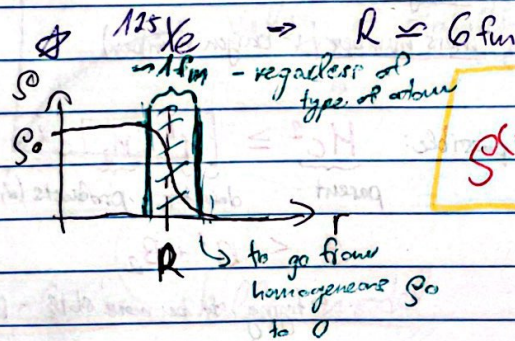 ☆ ¹²⁵Xe → R ≃ 6 fm
~1fm - regardless of
type of atom
ρ
ρ₀
ρ(
R
r
↳ to go from
homogeneous ρ₀
to 0